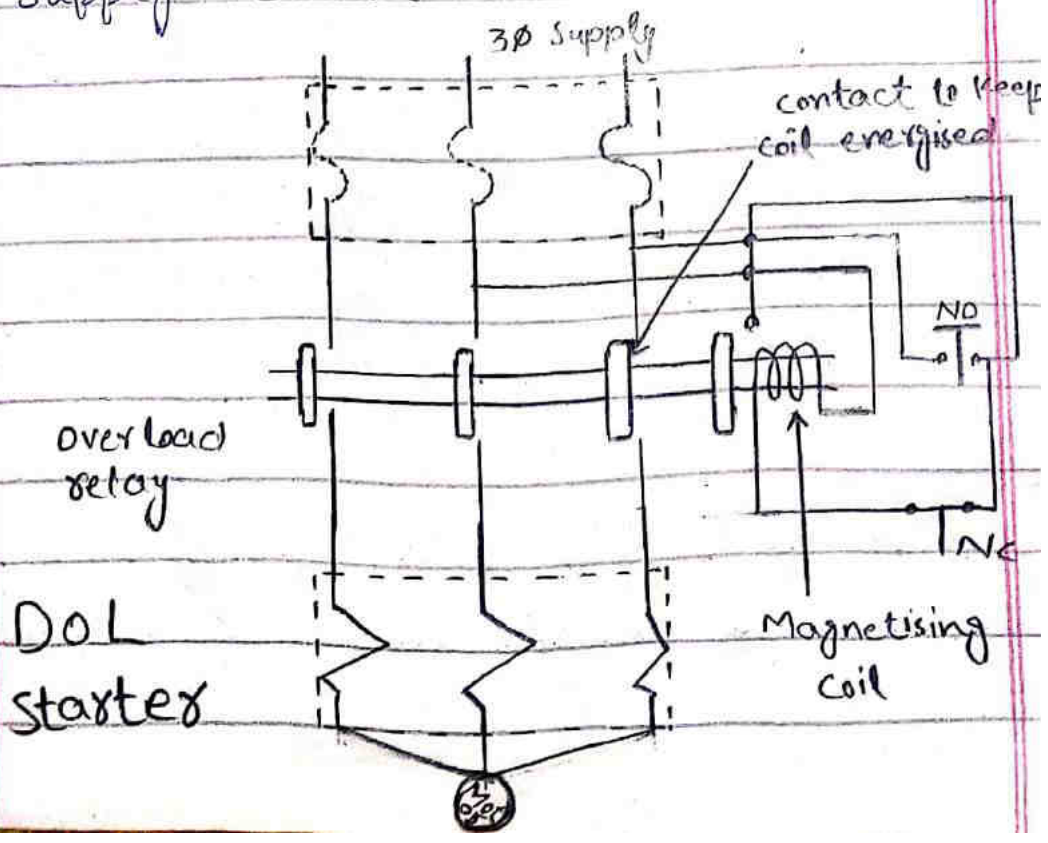 Supply
3Ø Supply
contact to keep
coil energised
NO
overload
relay
NC
DOL
starter
Magnetising
coil